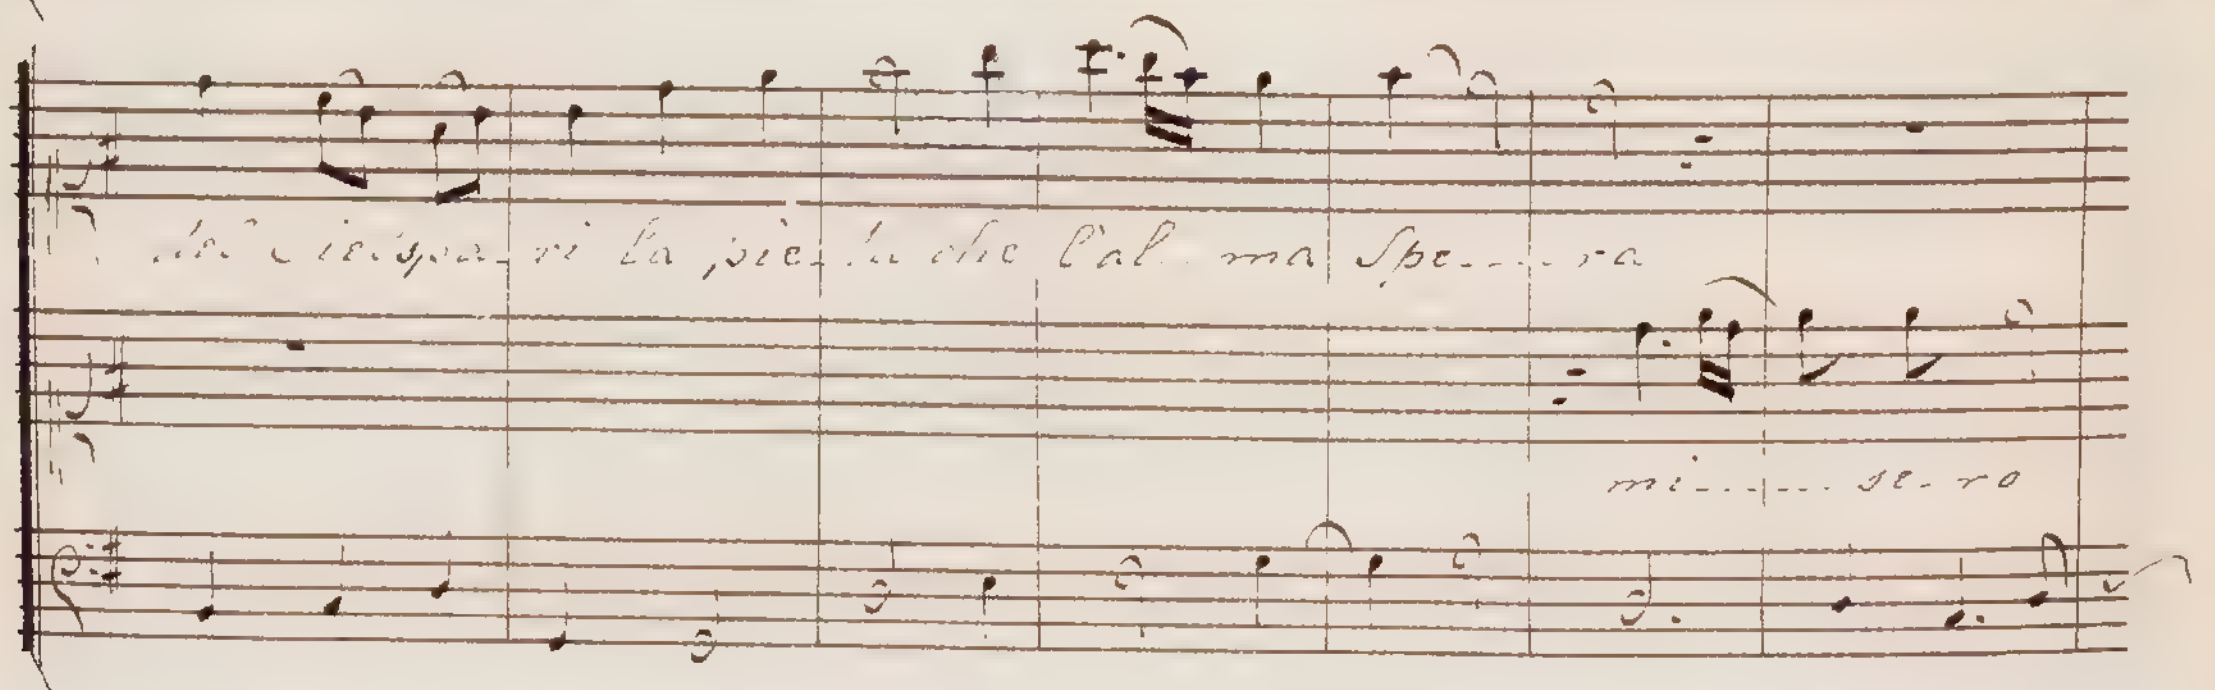 del Ciel spa- ri la pie- tà che l'al- ma Spe- - - - ra
mi- - - - - - se- ro